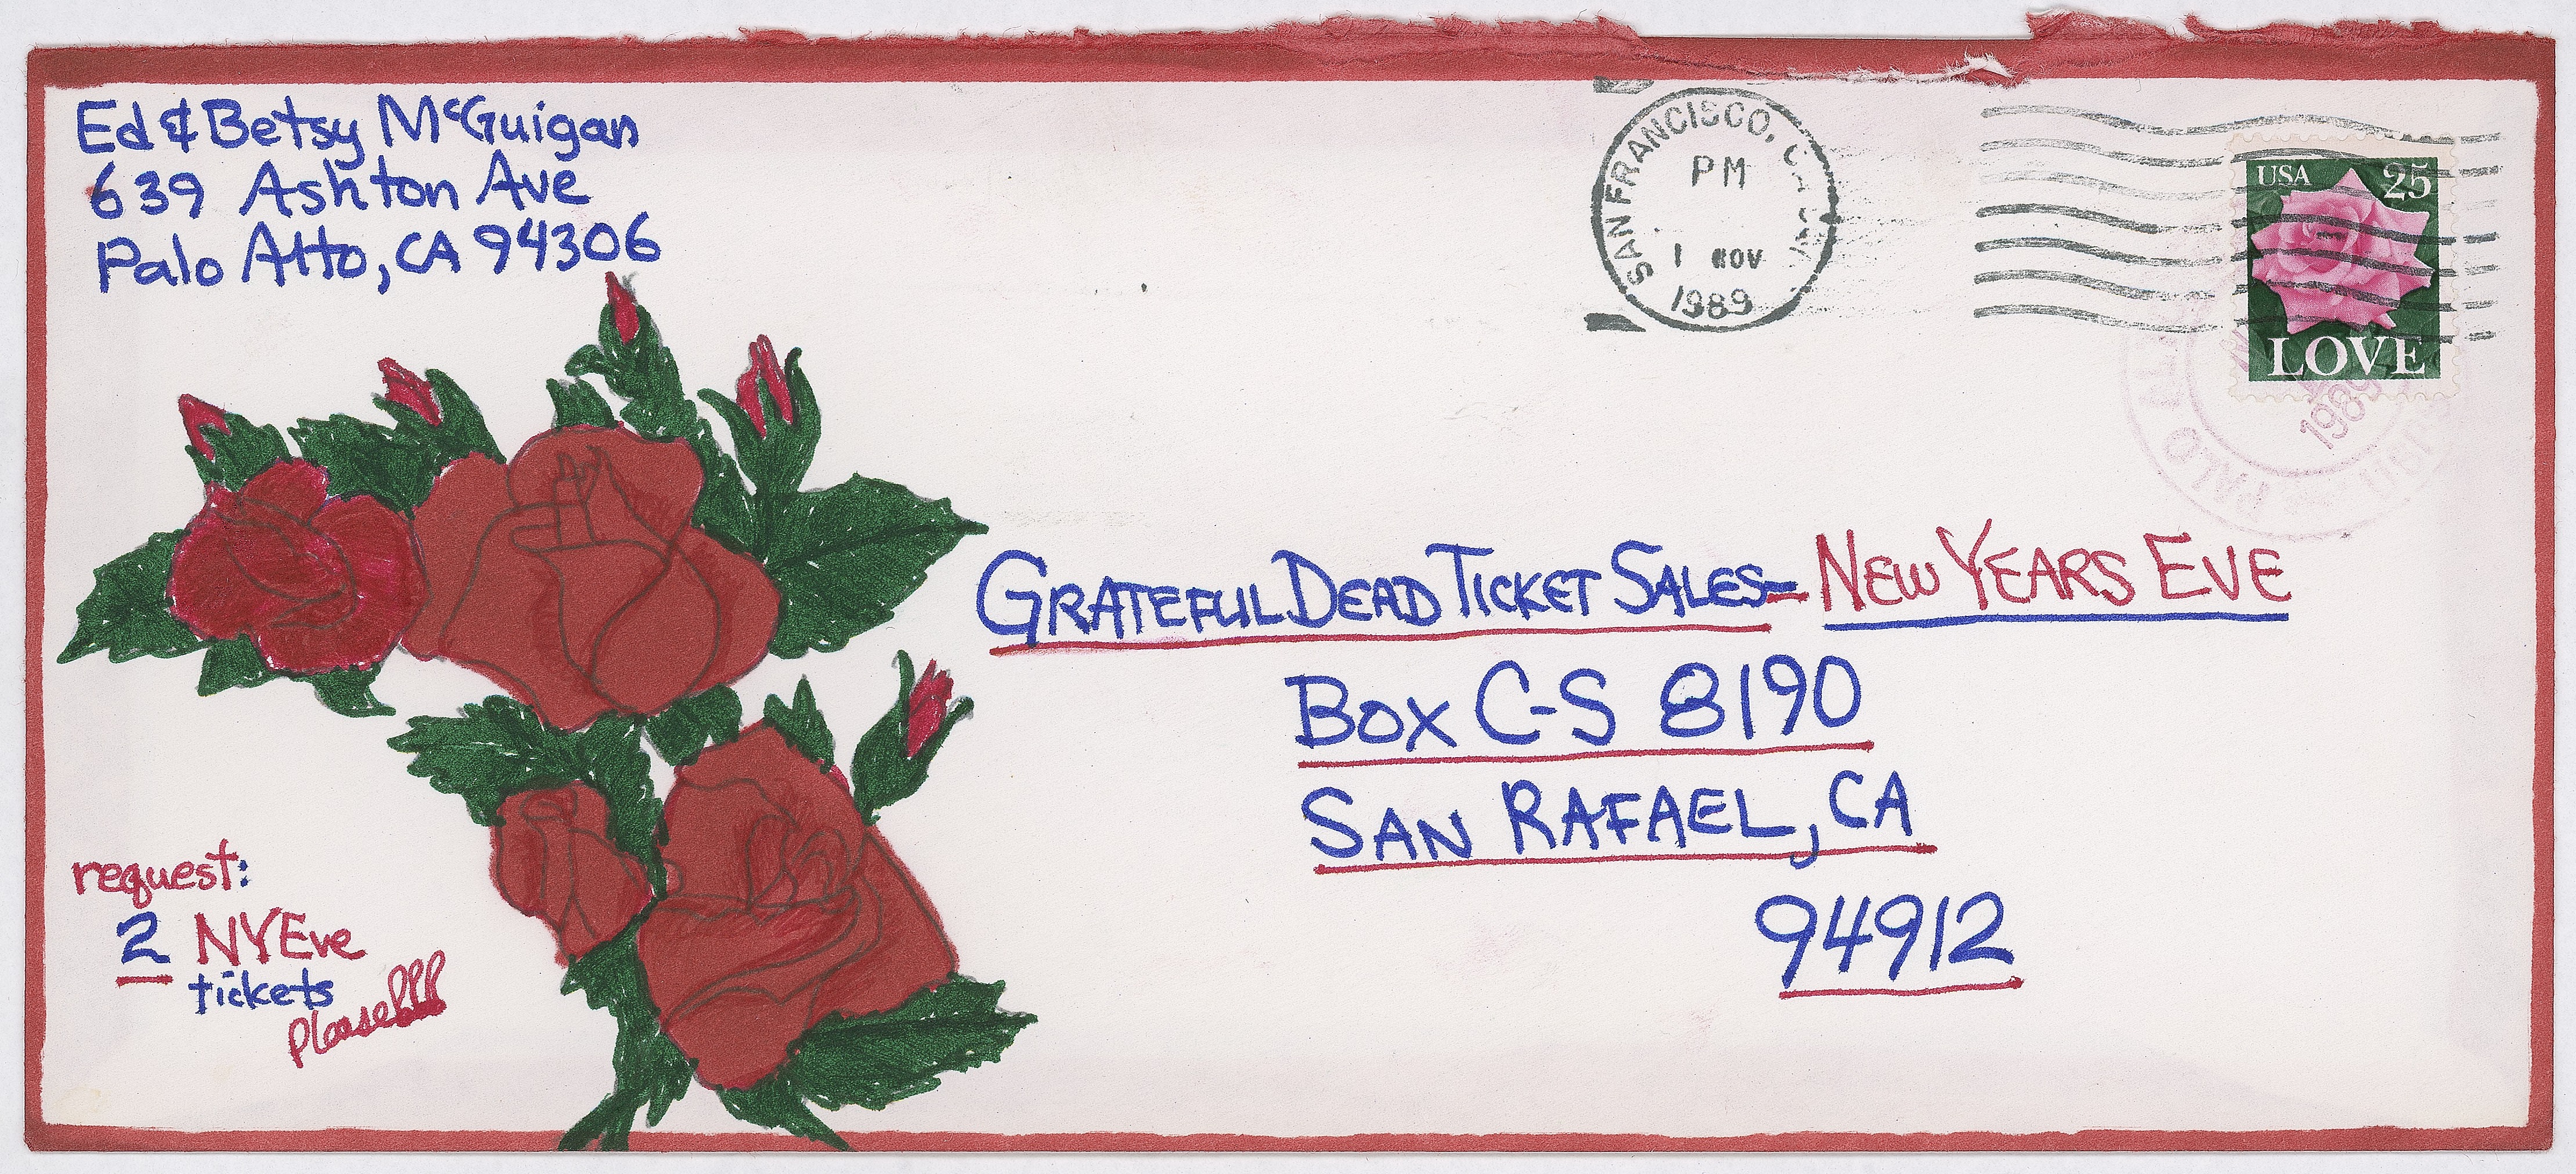 Ed & Betsy McGuigan
639 Ashton Ave
Palo Alto, CA 94306
SAN FRANCISCO, CA
PM
1 NOV
1989
USA 25
LOVE
1989
PALO
GRATEFUL DEAD TICKET SALES - NEW YEARS EVE
BOX C-S 8190
SAN RAFAEL, CA
94912
request:
2 NYEve
tickets
Please!!!